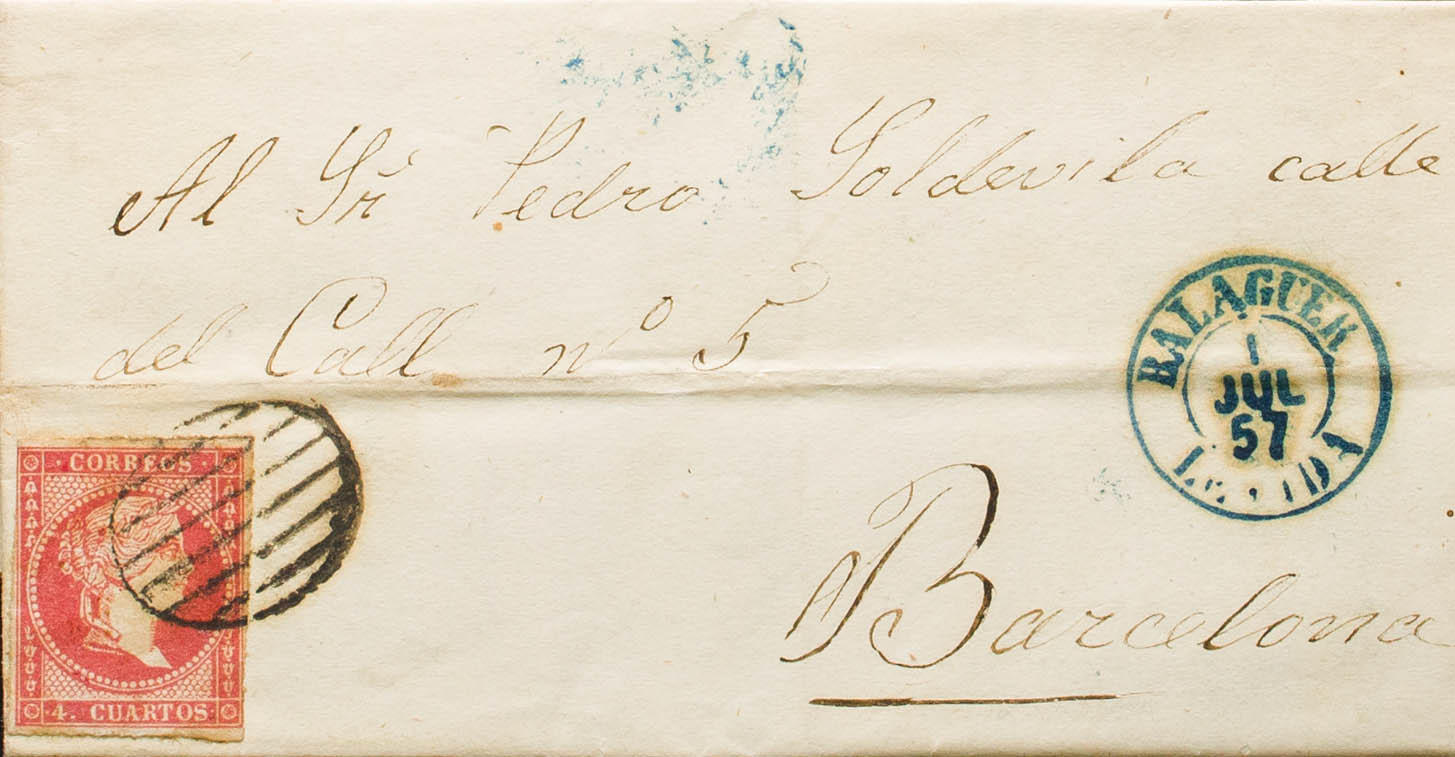 Al Sr Pedro Soldevila calle
del Call nº 5
BALAGUER
1
JUL
57
CORREOS
Barcelona
4. CUARTOS